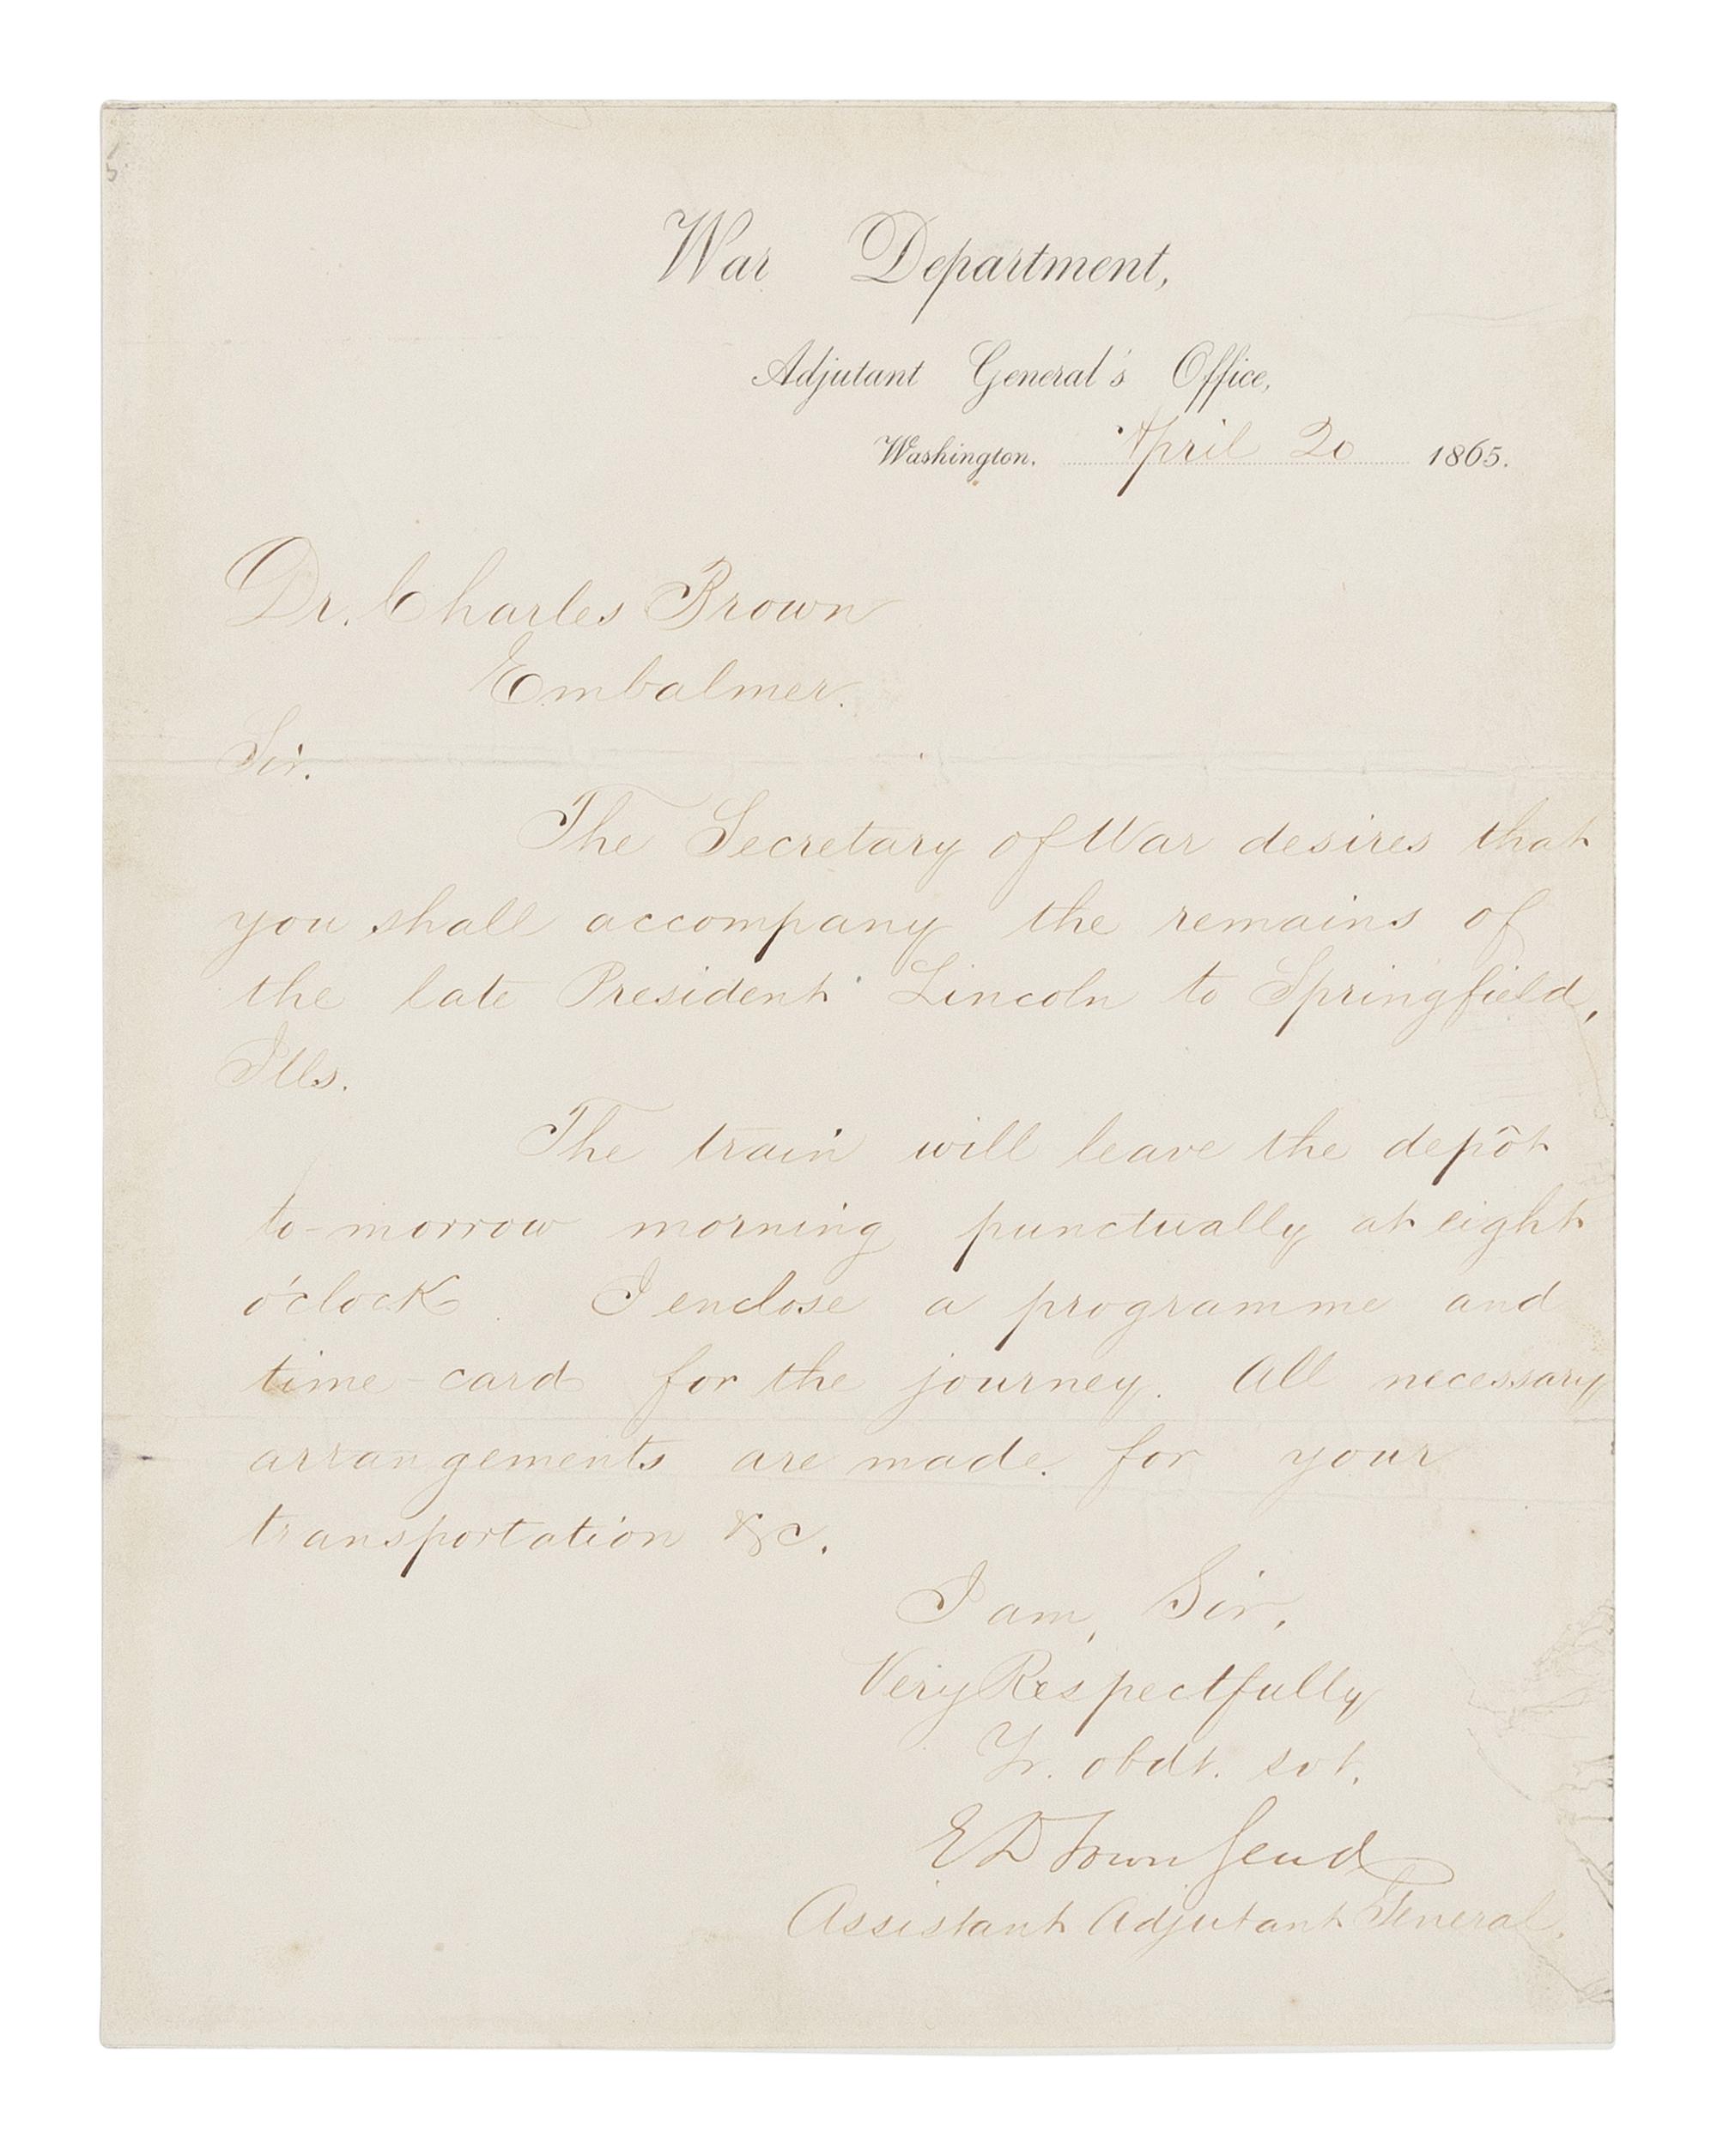 War Department,
Adjutant General's Office,
Washington. April 20 1865.
Dr. Charles Brown
Embalmer.
Sir.
The Secretary of War desires that
you shall accompany the remains of
the late President Lincoln to Springfield,
Ills.
The train will leave the depôt
to-morrow morning punctually at eight
o'clock. I enclose a programme and
time-card for the journey. All necessary
arrangements are made for your
transportation &c.
I am, Sir,
Very Respectfully
Yr. obdt. svt.
E D Townsend
Assistant Adjutant General.